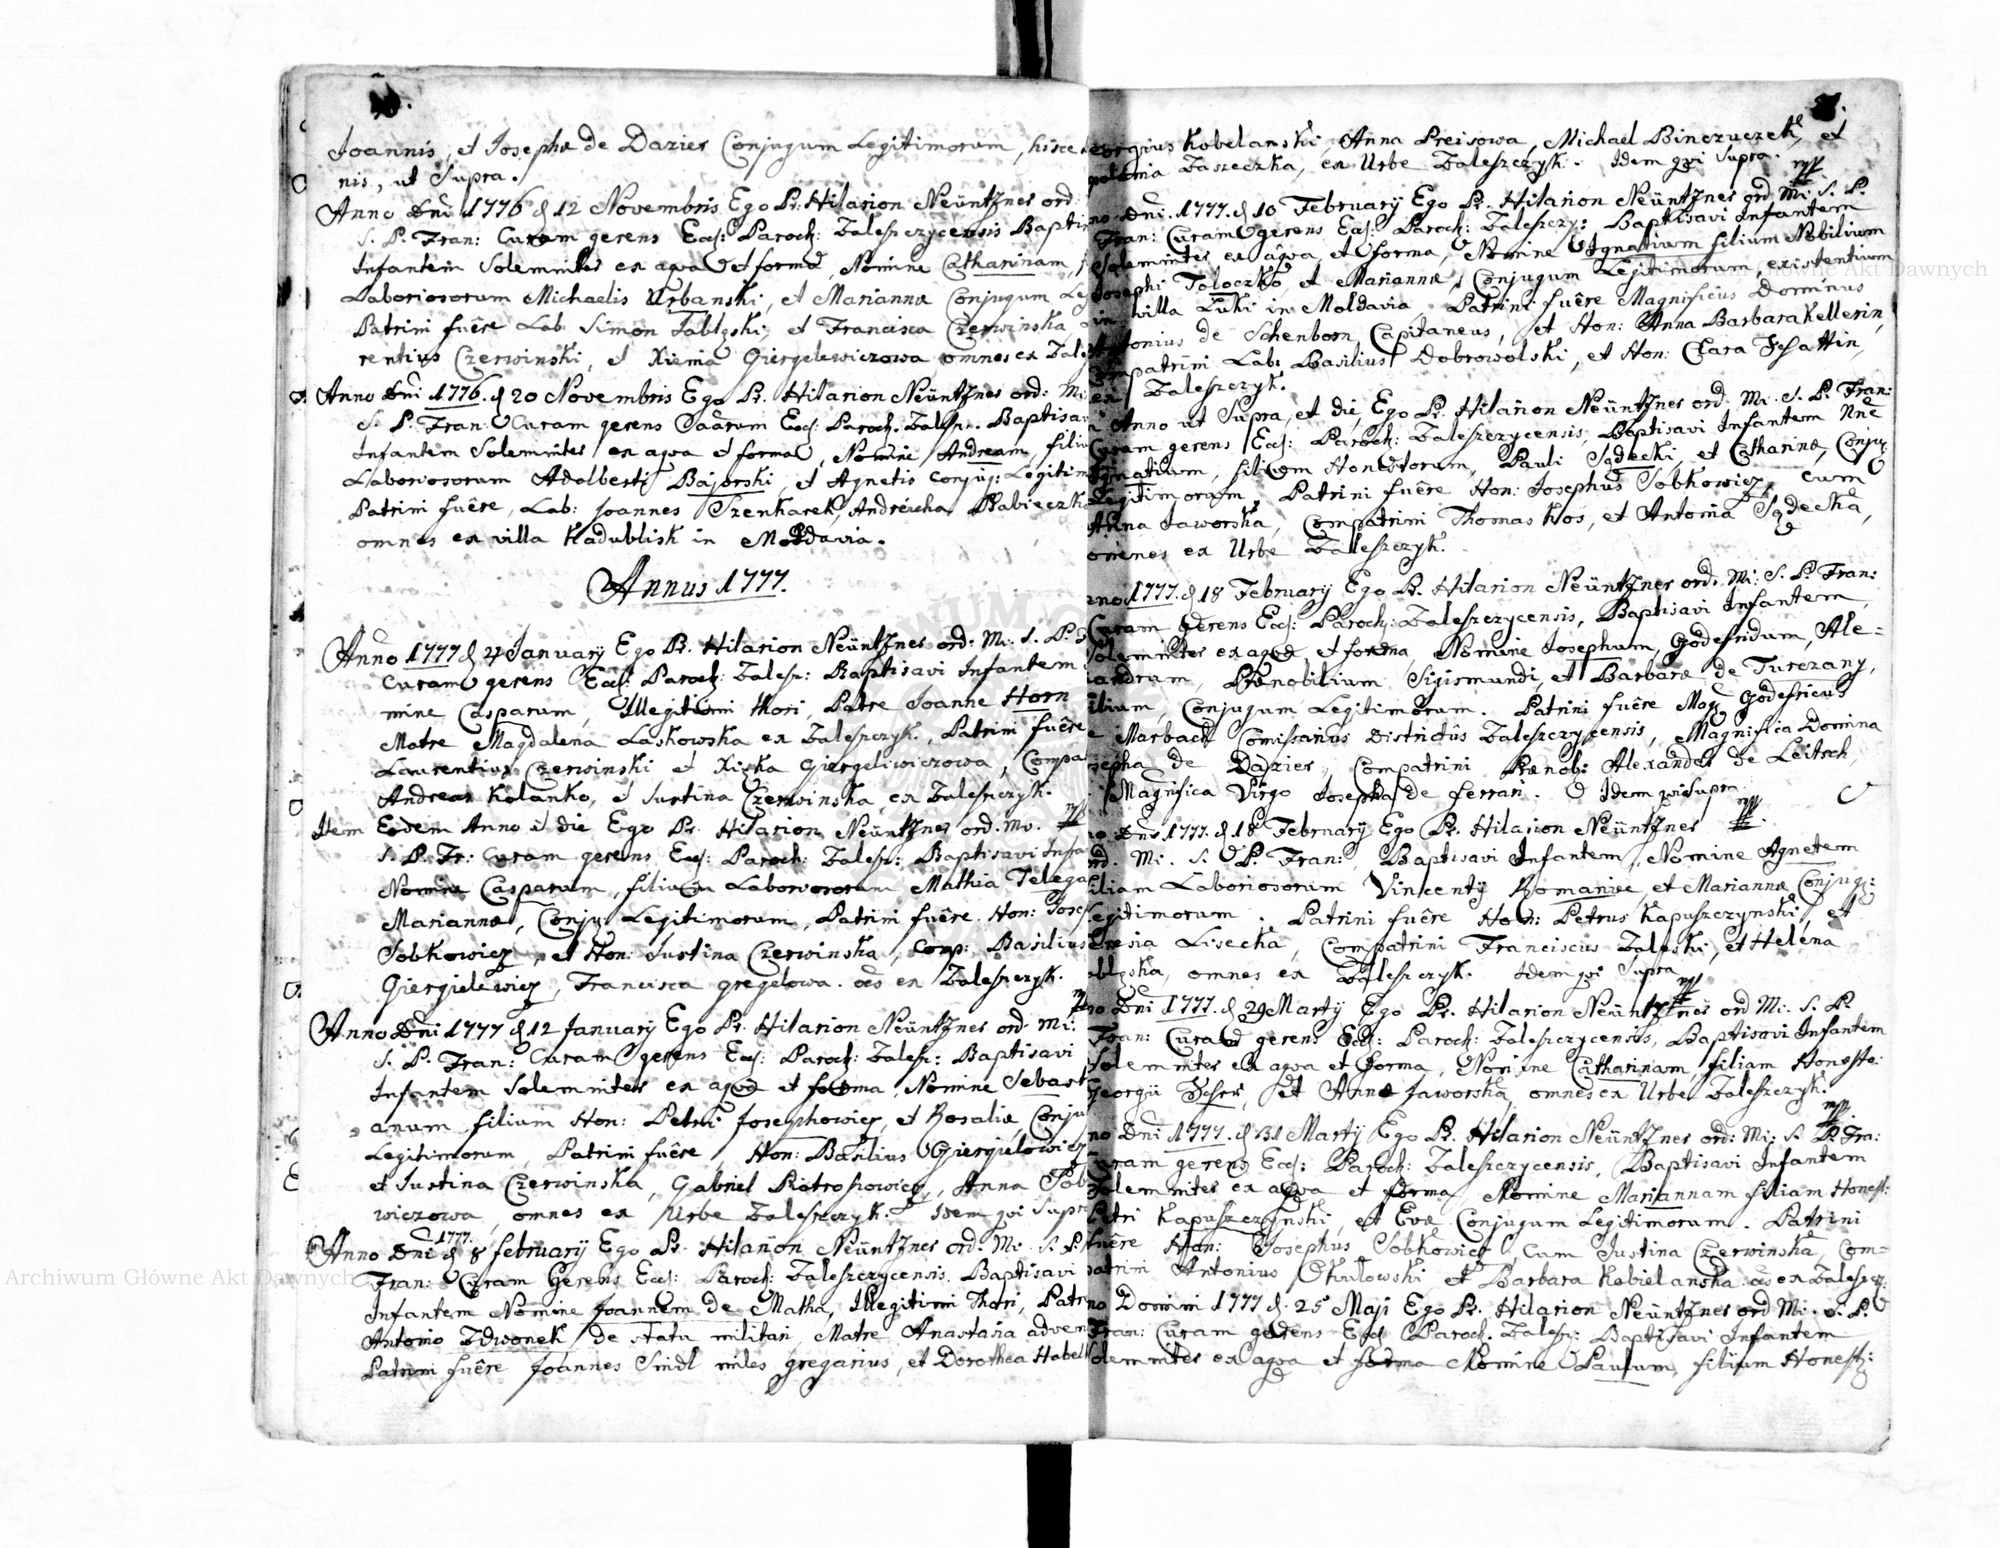 Joannis, et Josephæ de Dazier Conjugum Legitimorum, hisce
nis, ut Supra.
Anno Dni 1776 d 12 Novembris Ego Pr. Hilarion Neüntzner ord:
S. P. Fran: Curam gerens Eccl: Paroch: Zaleszczycensis Bapti
Infantem Solemniter ex aqva et forma, Nomine Catharinam,
Laboriosorum Michaelis Urbanski, et Mariannæ Conjugum Le
Patrini fuêre Lab. Simon Jablyski, et Francisca Czerwinska
rentius Czerwinski, et Xienia Giergelewiczowa omnes ex Zale
Anno Dni 1776. d 20 Novembris Ego Pr. Hilarion Neüntzner ord: Mi:
S. P. Fran: Curam gerens Eccl: Paroch. Zalesz. Baptisa
Infantem Solemniter ex aqva et forma, Nomine Andream, filiu
Laboriosorum Adalberti Bajorski, et Agnetis Conjug: Legitim
Patrini fuêre, Lab: Joannes Szenharek, Babieczka
omnes ex villa Kadublisk in Moldavia.
Annus 1777.
Anno 1777 d 4 January Ego Pr. Hilarion Neüntzner ord: Mi: S. P.
Curam gerens Eccl: Paroch: Zalesz: Baptisavi Infantem
mine Casparum, Illegitimi thori, Patre Joanne Horn
Matre Magdalena Laskowska ex Zaleszczyk. Patrini fuêre
Laurentius Czerwinski et Xiska Giergeliwiczowa, Compa
Andreas Kolanko, et Justina Czerwinska ex Zaleszczyk.
Item Eodem Anno et die Ego Pr. Hilarion Neüntzner ord. Mi.
S. P. Fr: Curam gerens Eccl: Paroch: Zalesz: Baptisavi Infa
Nomine Casparum, filium Laboriosorum Mathia Telega
Mariannæ, Conju Legitimorum, Patrini fuêre Hon: Josep
Sobkowicz, et Hon: Justina Czerwinska, Comp: Basilius
Giergielewicz, Francisca gregelowa. oes ex Zaleszczyk.
Anno Dni 1777 d 12 January Ego Pr. Hilarion Neüntzner ord Mi:
S. P. Fran: Curam gerens Eccl: Paroch: Zalesz: Baptisavi
Infantem Solemniter ex aqva et forma, Nomine Sebast
anum filium Hon: Petri Josephowicz, et Rosaliæ, Conju
Legitimorum, Patrini fuêre Hon: Basilius Giergielowicz
et Justina Czerwinska, Gabriel Piotrosiowicz, Anna Sob
wiczowa, omnes ex Urbe Zaleszczyk. Idem qvi Supra
1777.
Anno Dni d 8 february Ego Pr. Hilarion Neüntzner ord: Mi: S. P.
Fran: Curam Gerens Eccl: Paroch: Zaleszczycensis. Baptisavi
Infantem Nomine Joannem de Matha, Illegitimi Thori, Patr
Antonio Zdwonek de statu militari, Matre Anastasia adven
Patrini fuêre Joannes Sindl miles gregarius, et Dorothea Habel
eorgius Kobelanski, Anna Preisowa, Michael Binczuczek, et
Zaszeczka, ex Urbe Zaleszczyk. Idem qvi Supra.
no Dni. 1777. d 10 February Ego Pr. Hilarion Neüntzner ord: Mi: S. P.
Fran: Curam gerens Eccl: Paroch: Zaleszczy: Baptisavi Infantem
Solemniter ex aqva, et forma, Nomine Ignatium filium Nobilium
Josephi Toloczko, et Mariannæ, Conjugum Legitimorum, existentium
in villa Luki in Moldavia. Patrini fuêre Magnificus Dominus
Antonius de Schenborn Capitaneus, et Hon: Anna Barbara Kellerin,
mpatrini Lab: Basilius Dobrowolski, et Hon: Clara
ex Zaleszczyk.
Anno ut Supra, et die, Ego Pr. Hilarion Neüntzner ord. Mi. S. P. Fran:
Curam gerens Eccl: Paroch: Zaleszczycensis, Baptisavi Infantem Nne
Ignatium, filium Honestorum, Pauli Sądecki, et Catharinæ, Conju
Legitimorum, Patrini fuêre Hon: Josephus Sobkowicz, cum
Anna Jaworska, Compatrini Thomas Kos, et Antonia Sądecka,
omnes ex Urbe Zaleszczyk.
nno 1777. d 18 February Ego Pr. Hilarion Neüntzner ord. Mi: S. P. Fran:
Curam gerens Eccl: Paroch: Zaleszczycensis, Baptisavi Infantem,
Solemniter ex aqva et forma, Nomine Josephum, Godefridum, Ale=
xandrum, Prænobilium Sigismundi, et Barbaræ de Turczany,
filium, Conjugum Legitimorum. Patrini fuêre Mag. Godefricus
e Marbach Comissarius Districtûs Zaleszczycensis, Magnifica Domina
osepha de Dazier, Compatrini Prænob: Alexander de Leitsch,
Magnifica Virgo Josepha de Ferrari. Idem qvi Supra
no Dni 1777. d 18 February Ego Pr. Hilarion Neüntzner
ord. Mi. S. P. Fran: Baptisavi Infantem, Nomine Agnetem
filiam Laboriosorum Vincenty Romaniec, et Mariannæ Conjug:
Legitimorum. Patrini fuêre Hon: Petrus Kapuszczynski, et
Lisecka, Compatrini Franciscus Zaleski, et Helena
ablyska, omnes ex Zaleszczyk. Idem qvi Supra
no Dni 1777. d 29 Marty Ego Pr. Hilarion Neüntzner ord Mi: S. P.
Fran: Curam gerens Eccl: Paroch: Zaleszczycensis, Baptisavi Infantem
Solemniter ex aqva et forma, Nomine Catharinam, filiam Honesto:
Georgii et Annæ Jaworska, omnes ex Urbe Zaleszczyk.
no Dni 1777. d 31 Marty Ego Pr. Hilarion Neüntzner ord: Mi: S. P. Fra:
Curam gerens Eccl: Paroch: Zaleszczycensis, Baptisavi Infantem
Solemniter ex aqva et forma, Nomine Mariannam filiam Honest:
Petri Kapuszczynski, et Evæ Conjugum Legitimorum. Patrini
fuêre Hon: Josephus Sobkowicz, Cum Justina Czerwinska, Com=
patrini Antonius Okulowski et Barbara Kobielanska. oes ex Zaleszcz:
no Domini 1777 d. 25 Maji Ego Pr. Hilarion Neüntzner ord Mi. S. P.
Fran: Curam gerens Eccl Paroch. Zalesz: Baptisavi Infantem
olemniter ex aqva et forma Nomine Paulum, filium Honest:
Archiwum Główne Akt Dawnych